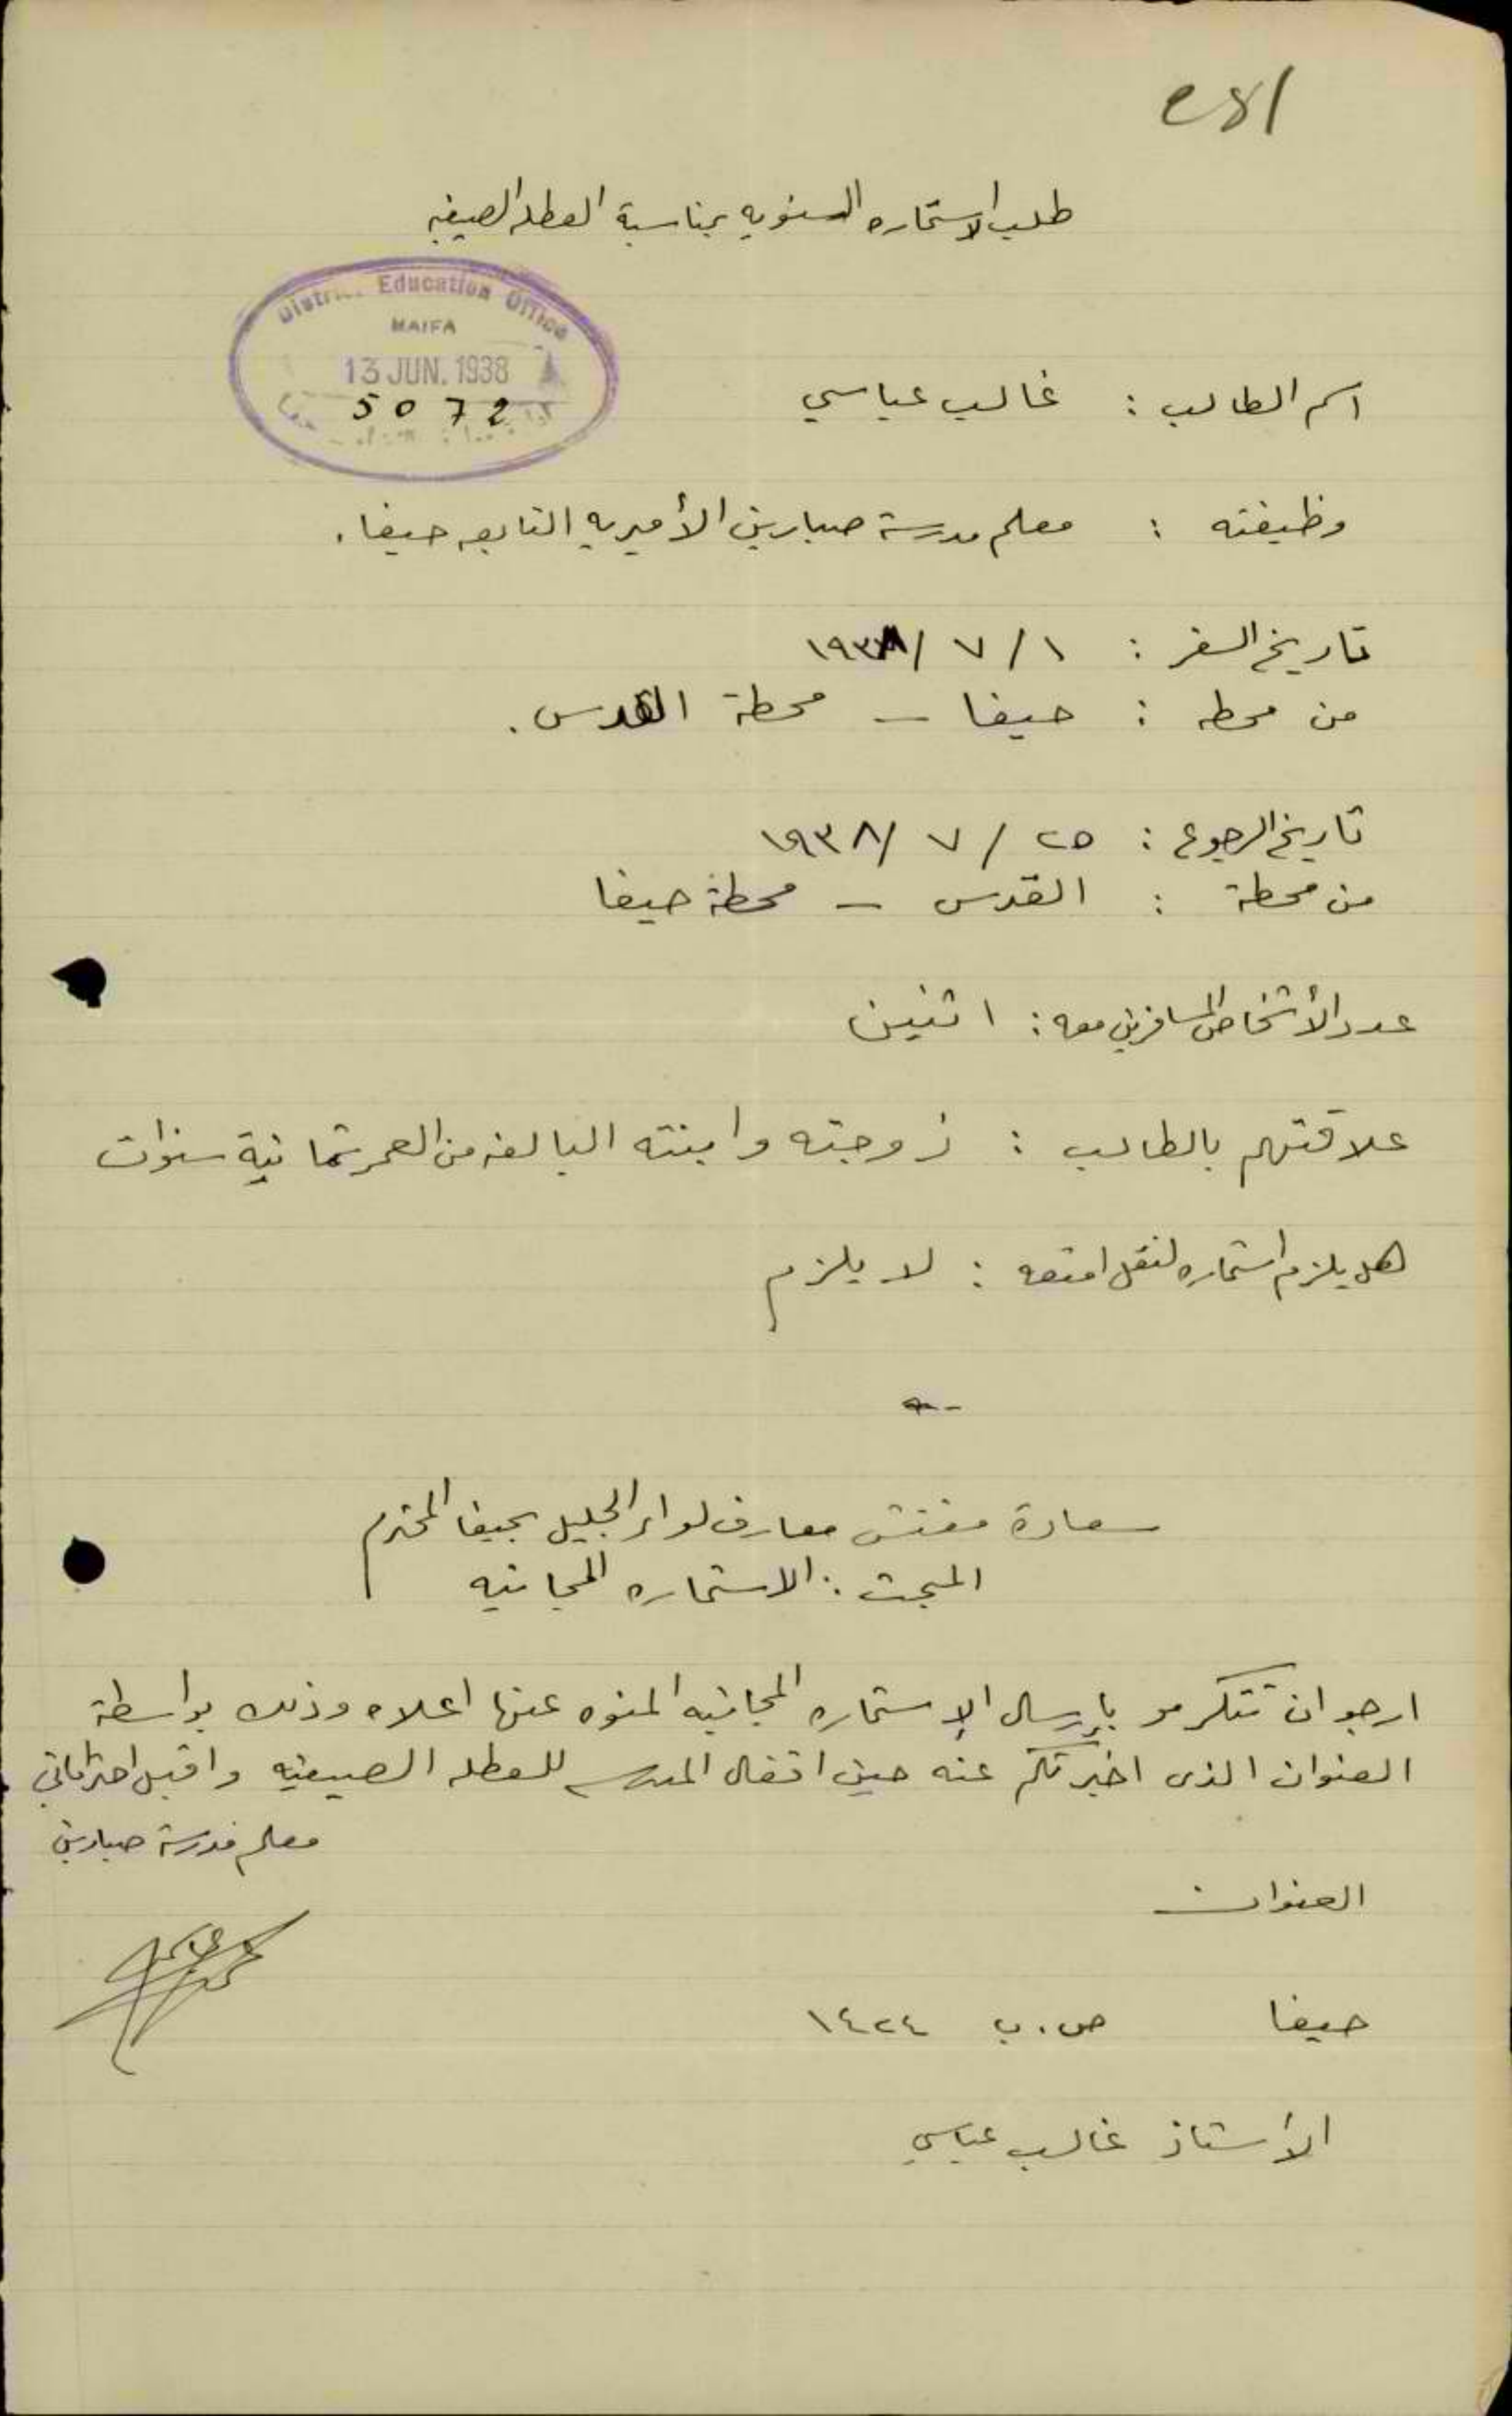 طلب الاستماره السنويه بمناسبة العطله الصيفيه
District Education Office
HAIFA
13 JUN. 1938
5072
اسم الطالب : غالب عباسي
وظيفته : معلم مدرسة صبارين الأميريه التابعه حيفا .
تاريخ السفر : ١ / ٧ / ١٩٣٨
من محطه : حيفا – محطة القدس .
تاريخ الرجوع : ٢٥ / ٧ / ١٩٣٨
من محطة : القدس – محطة حيفا
عدد الأشخاص المسافرين معه : اثنين
علاقتهم بالطالب : زوجته وابنته البالغه من العمر ثمانية سنوات
هل يلزم استماره لنقل امتعه : لا يلزم
سعادة مفتش معارف لواء الجليل بحيفا المحترم
المبحث : الاستماره المجانيه
ارجو ان تتكرمو بإرسال الإستماره المجانيه المنوه عنها اعلاه وذلك بواسطة
العنوان الذى اخبرتكم عنه حين اقفال المدرسه للعطله الصيفيه واقبل احتراماتي
معلم مدرسة صبارين
العنوان
حيفا ص . ب ١٤٢٤
الأستاذ غالب عباسي